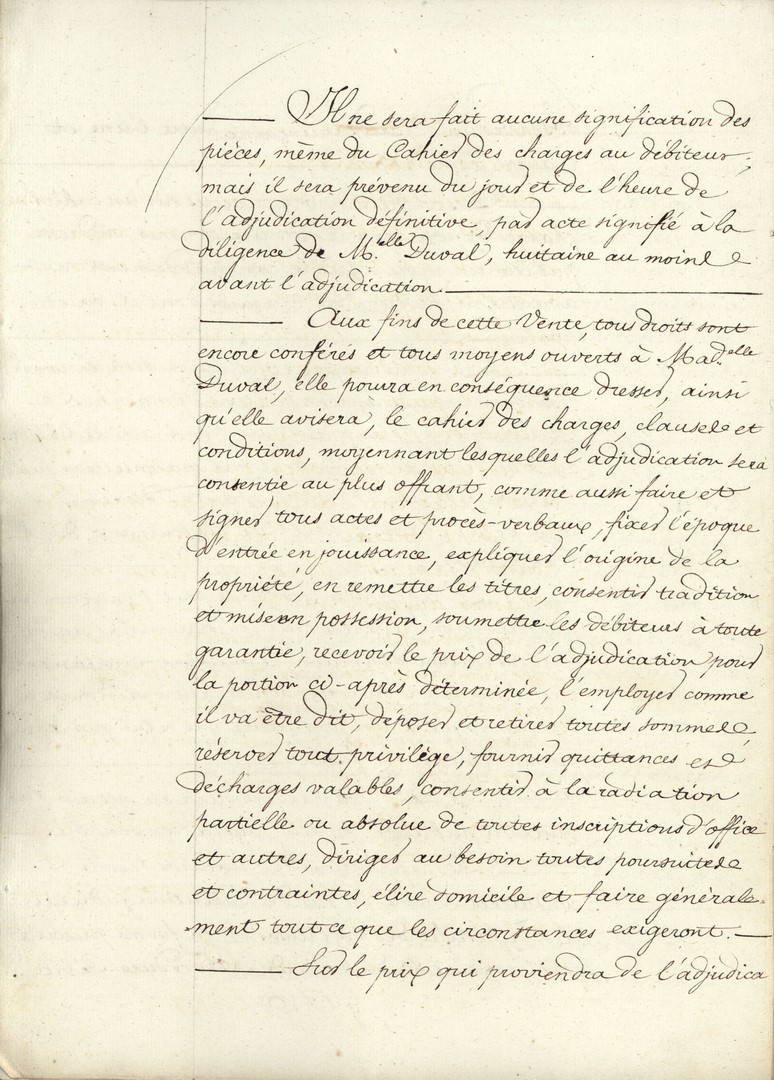 Il ne sera fait aucune signification des
pièces, même du Cahier des charges au débiteur,
mais il sera prévenu du jour et de l'heure de
l'adjudication définitive, par acte signifié à la
diligence de M.elle Duval, huitaine au moins
avant l'adjudication
Aux fins de cette Vente, tous droits sont
encore conférés et tous moyens ouverts à Mad.elle
Duval, elle pourra en conséquence dresser, ainsi
qu'elle avisera, le cahier des charges, clauses et
conditions, moyennant lesquelles l'adjudication sera
consentie au plus offrant, comme aussi faire et
signer tous actes et procès-verbaux, fixer l'époque
d'entrée en jouissance, expliquer l'origine de la
propriété, en remettre les titres, consentir tradition
et mise en possession, soumettre les débiteurs à toute
garantie, recevoir le prix de l'adjudication pour
la portion ci-après déterminée, l'employer comme
il va être dit, déposer et retirer toutes sommes,
réserver tout privilège, fournir quittances et
décharges valables, consentir à la radiation
partielle ou absolue de toutes inscriptions d'office
et autres, diriger au besoin toutes poursuites
et contraintes, élire domicile et faire générale-
ment tout ce que les circonstances exigeront.
Sur le prix qui proviendra de l'adjudica